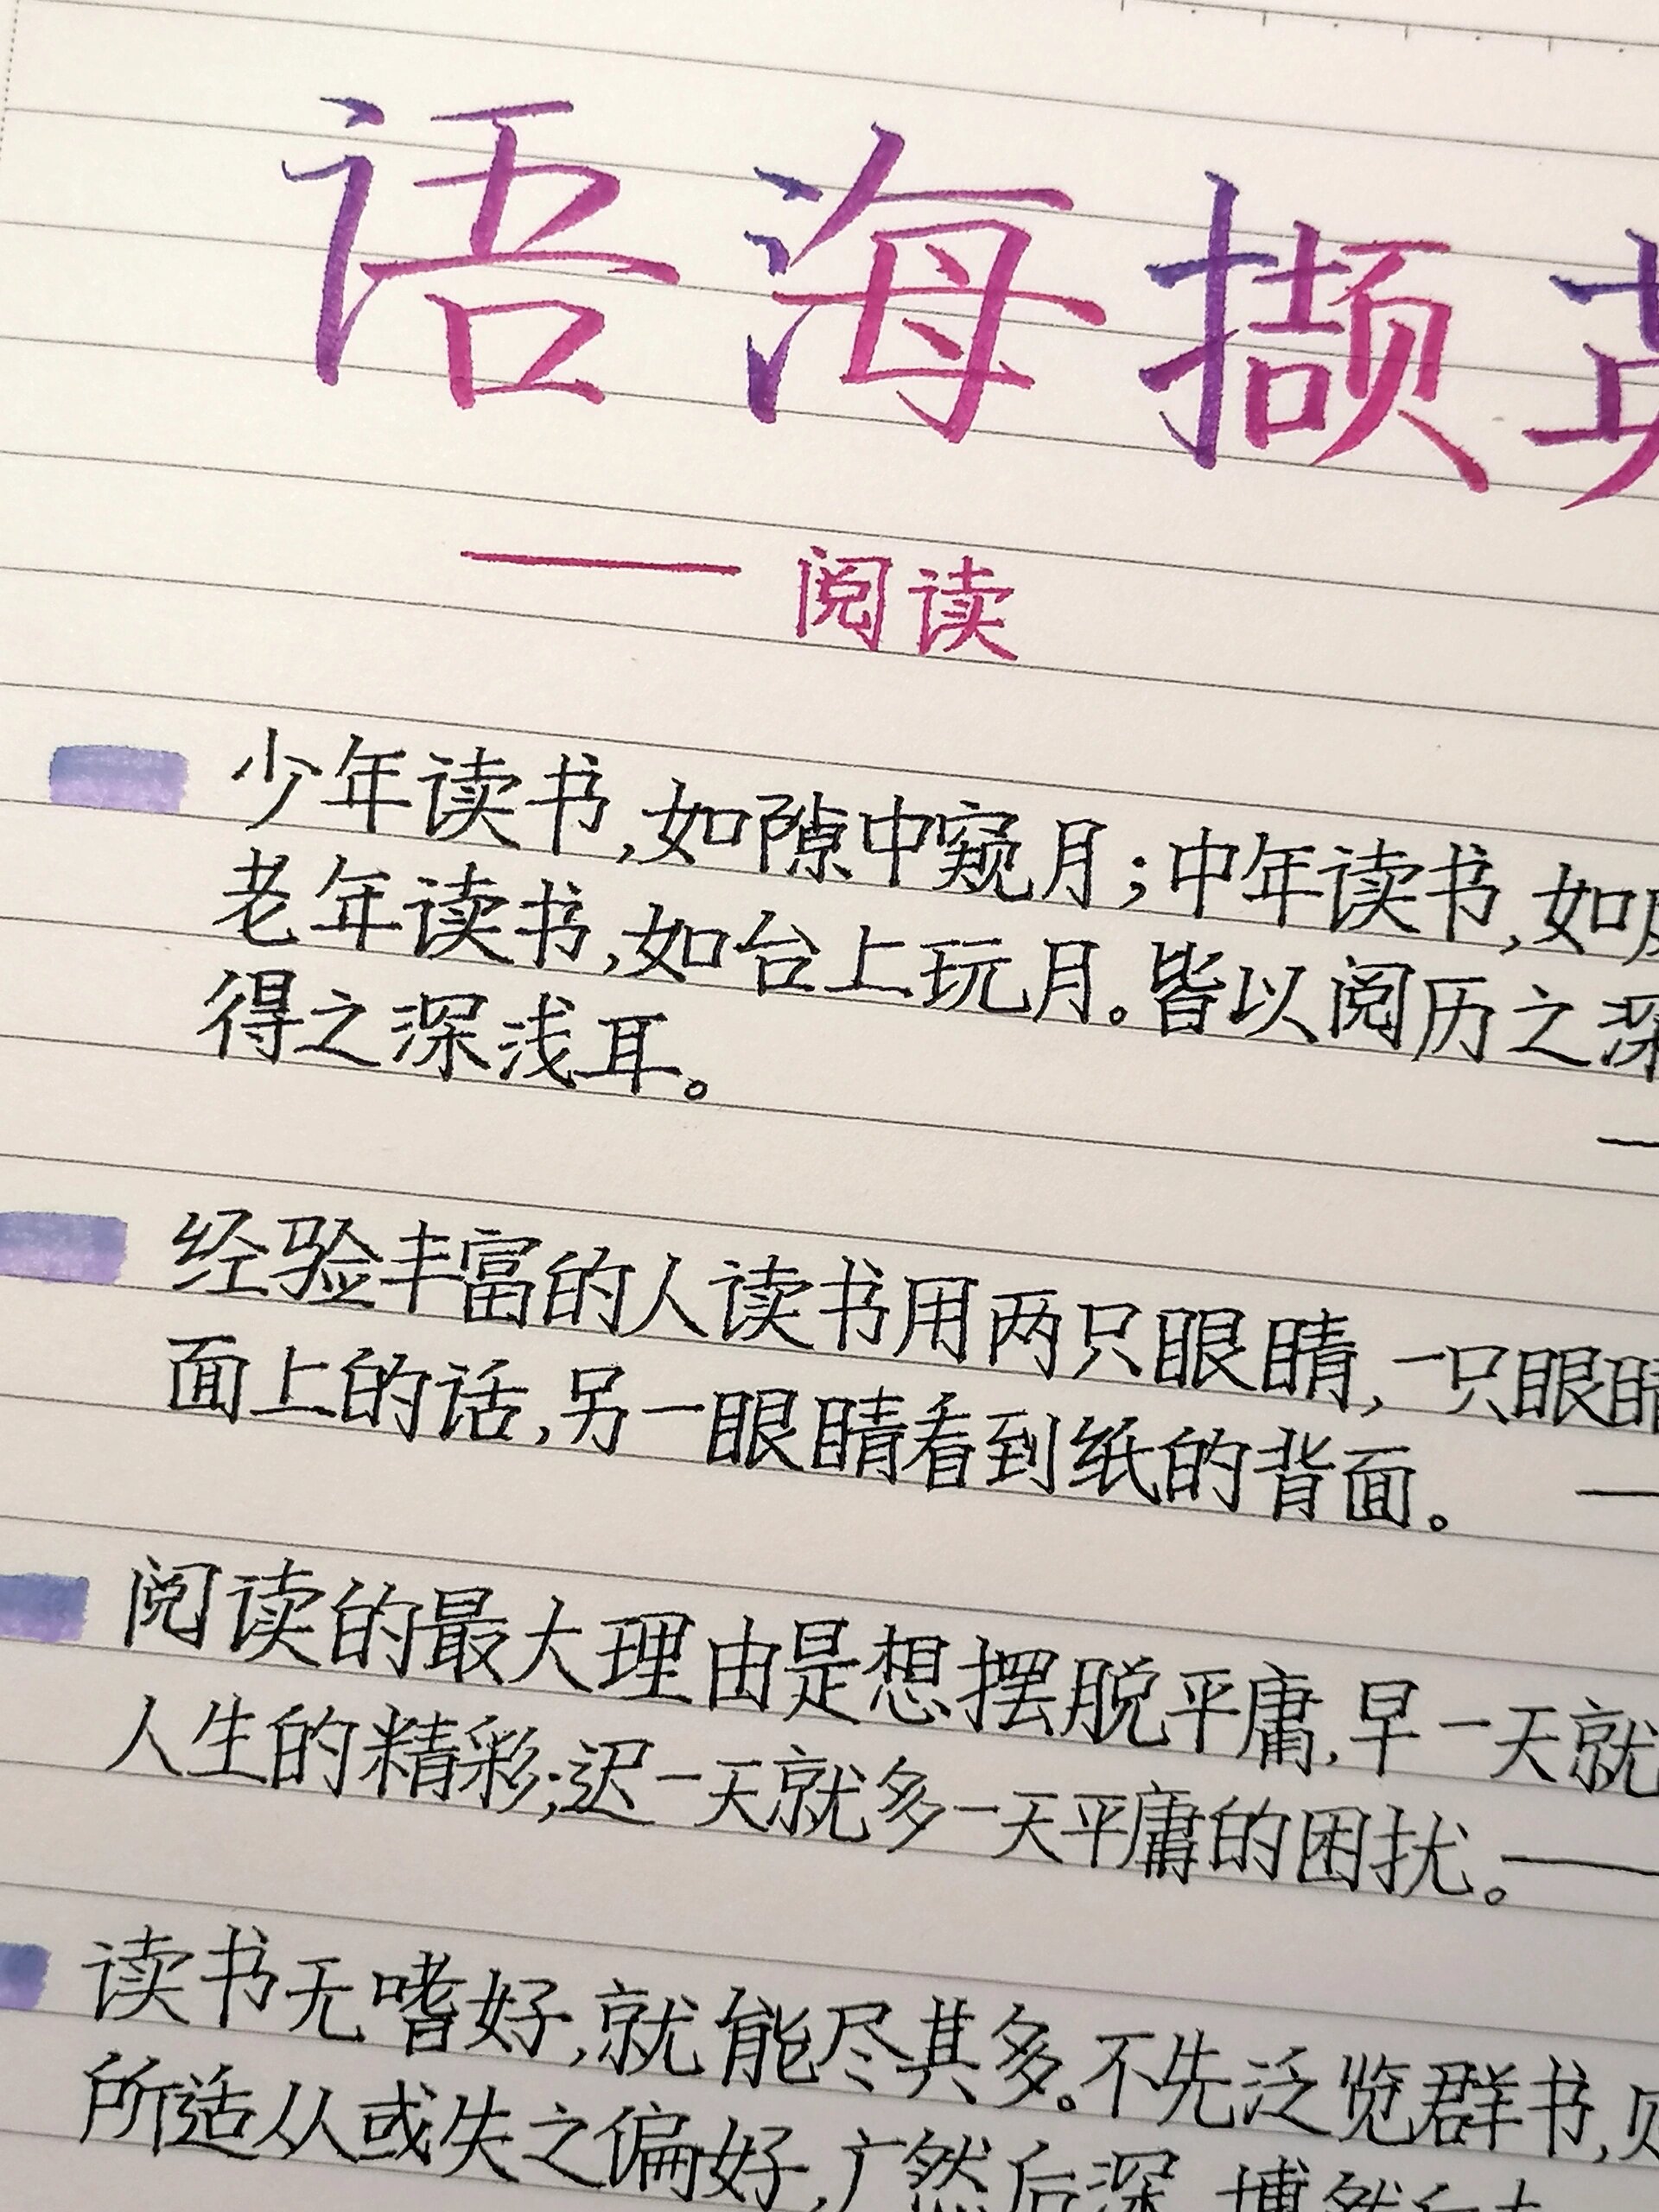 语海撷英
——阅读
少年读书,如隙中窥月;中年读书,如
老年读书,如台上玩月。皆以阅历之深
得之深浅耳。
经验丰富的人读书用两只眼睛,一只眼睛
面上的话,另一眼睛看到纸的背面。
阅读的最大理由是想摆脱平庸,早一天就
人生的精彩;迟一天就多一天平庸的困扰。——
读书无嗜好,就能尽其多。不先泛览群书,则
所适从或失之偏好,广然后深,博然后